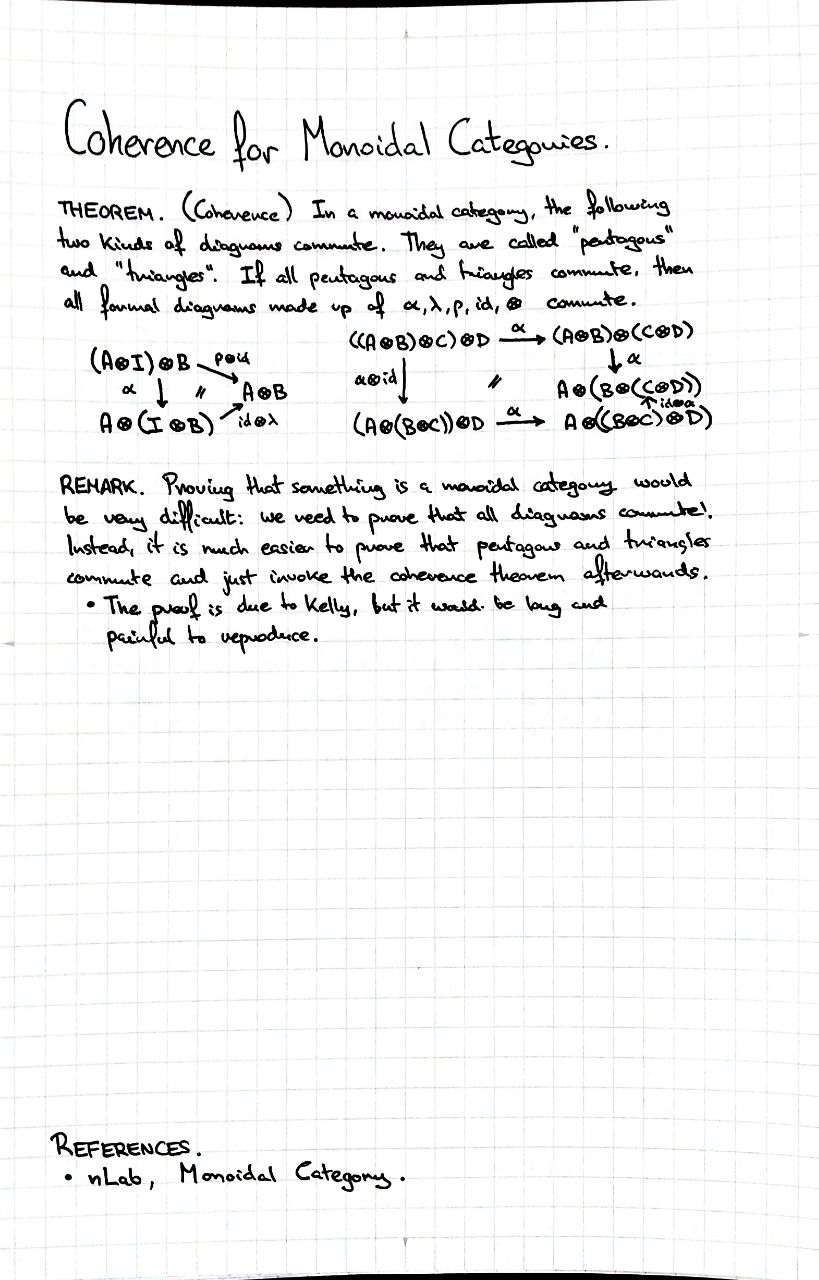 Coherence for Monoidal Categories.
THEOREM. (Coherence) In a monoidal category, the following
two kinds of diagrams commute. They are called "pentagons"
and "triangles". If all pentagons and triangles commute, then
all formal diagrams made up of α, λ, ρ, id, ⊗ commute.
((A⊗B)⊗C)⊗D α (A⊗B)⊗(C⊗D)
(A⊗I)⊗B ρ⊗id
α⊗id // α
α // A⊗B
A⊗(B⊗(C⊗D))
id⊗α
A⊗(I⊗B) id⊗λ
(A⊗(B⊗C))⊗D α A⊗((B⊗C)⊗D)
REMARK. Proving that something is a monoidal category would
be very difficult: we need to prove that all diagrams commute!
Instead, it is much easier to prove that pentagons and triangles
commute and just invoke the coherence theorem afterwards.
• The proof is due to Kelly, but it would be long and
painful to reproduce.
REFERENCES.
• nLab, Monoidal Category.